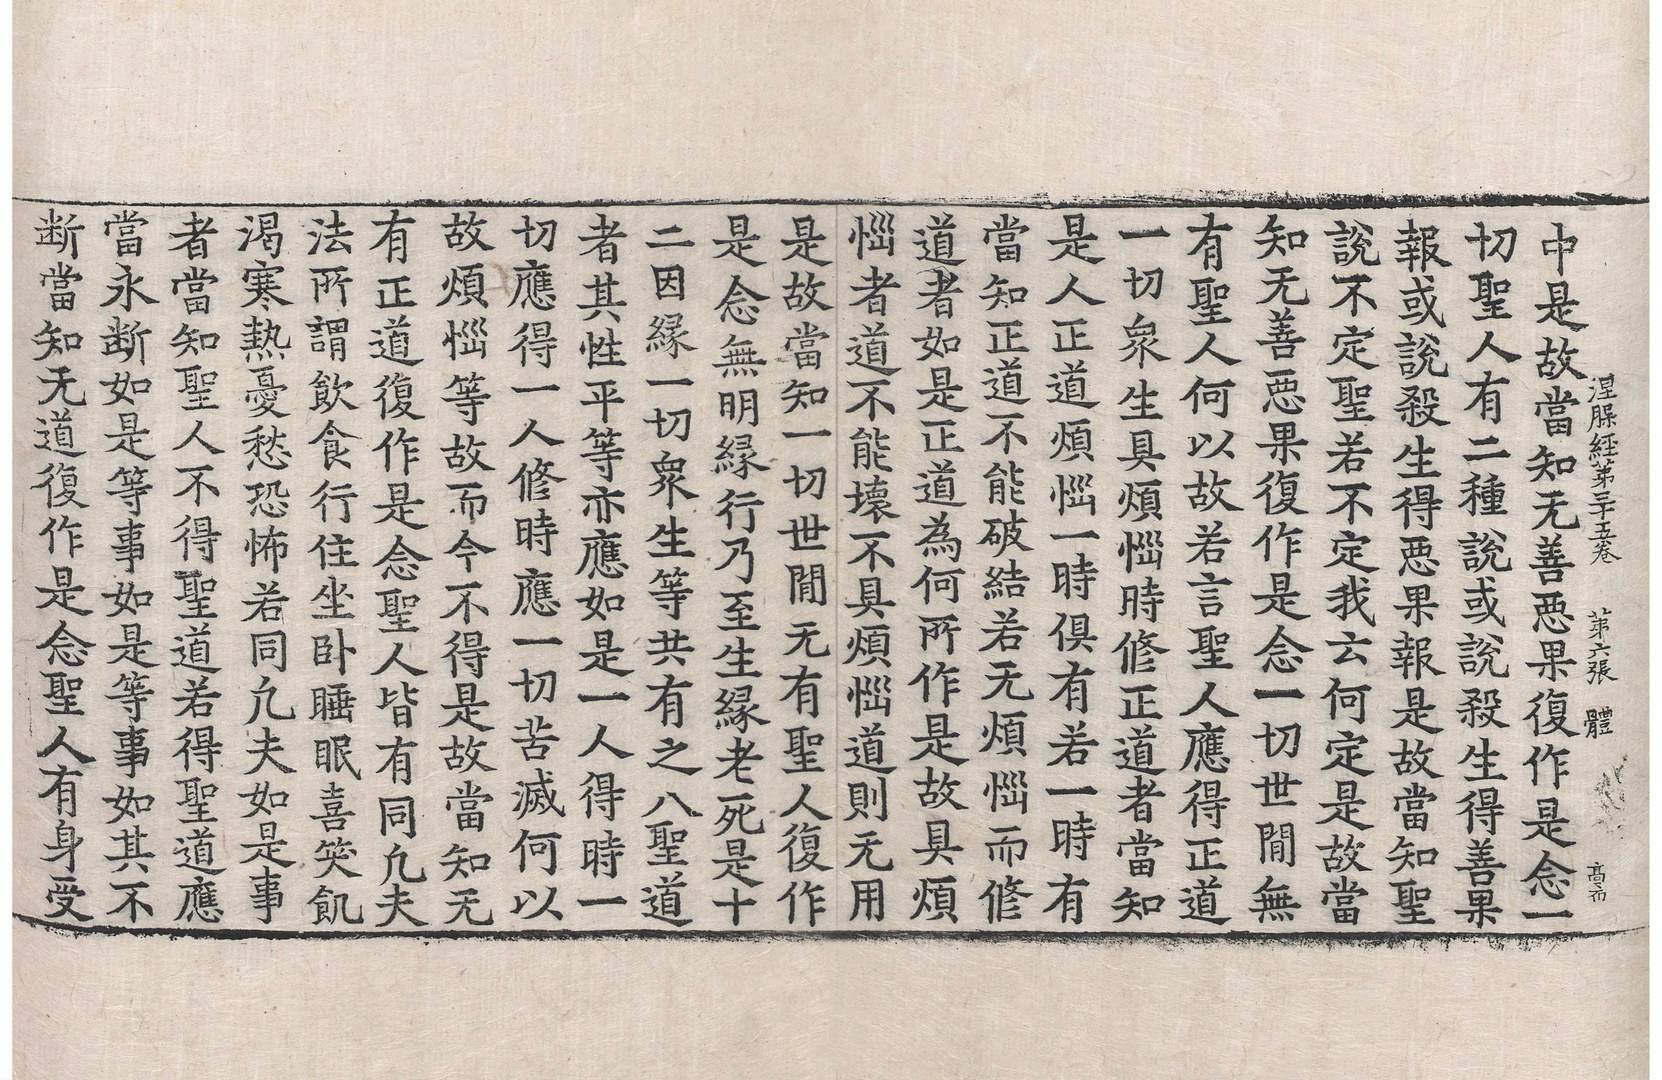 涅槃經第三十五卷　第六張　體　高亢
中是故當知无善惡果復作是念一
切聖人有二種說或說殺生得善果
報或說殺生得惡果報是故當知聖
說不定聖若不定我云何定是故當
知无善惡果復作是念一切世間無
有聖人何以故若言聖人應得正道
一切眾生具煩惱時修正道者當知
是人正道煩惱一時俱有若一時有
當知正道不能破結若无煩惱而修
道者如是正道為何所作是故具煩
惱者道不能壞不具煩惱道則无用
是故當知一切世間无有聖人復作
是念無明緣行乃至生緣老死是十
二因緣一切眾生等共有之八聖道
者其性平等亦應如是一人得時一
切應得一人修時應一切苦滅何以
故煩惱等故而今不得是故當知无
有正道復作是念聖人皆有同凡夫
法所謂飲食行住坐卧睡眠喜笑飢
渴寒熱憂愁恐怖若同凡夫如是事
者當知聖人不得聖道若得聖道應
當永断如是等事如是等事如其不
断當知无道復作是念聖人有身受